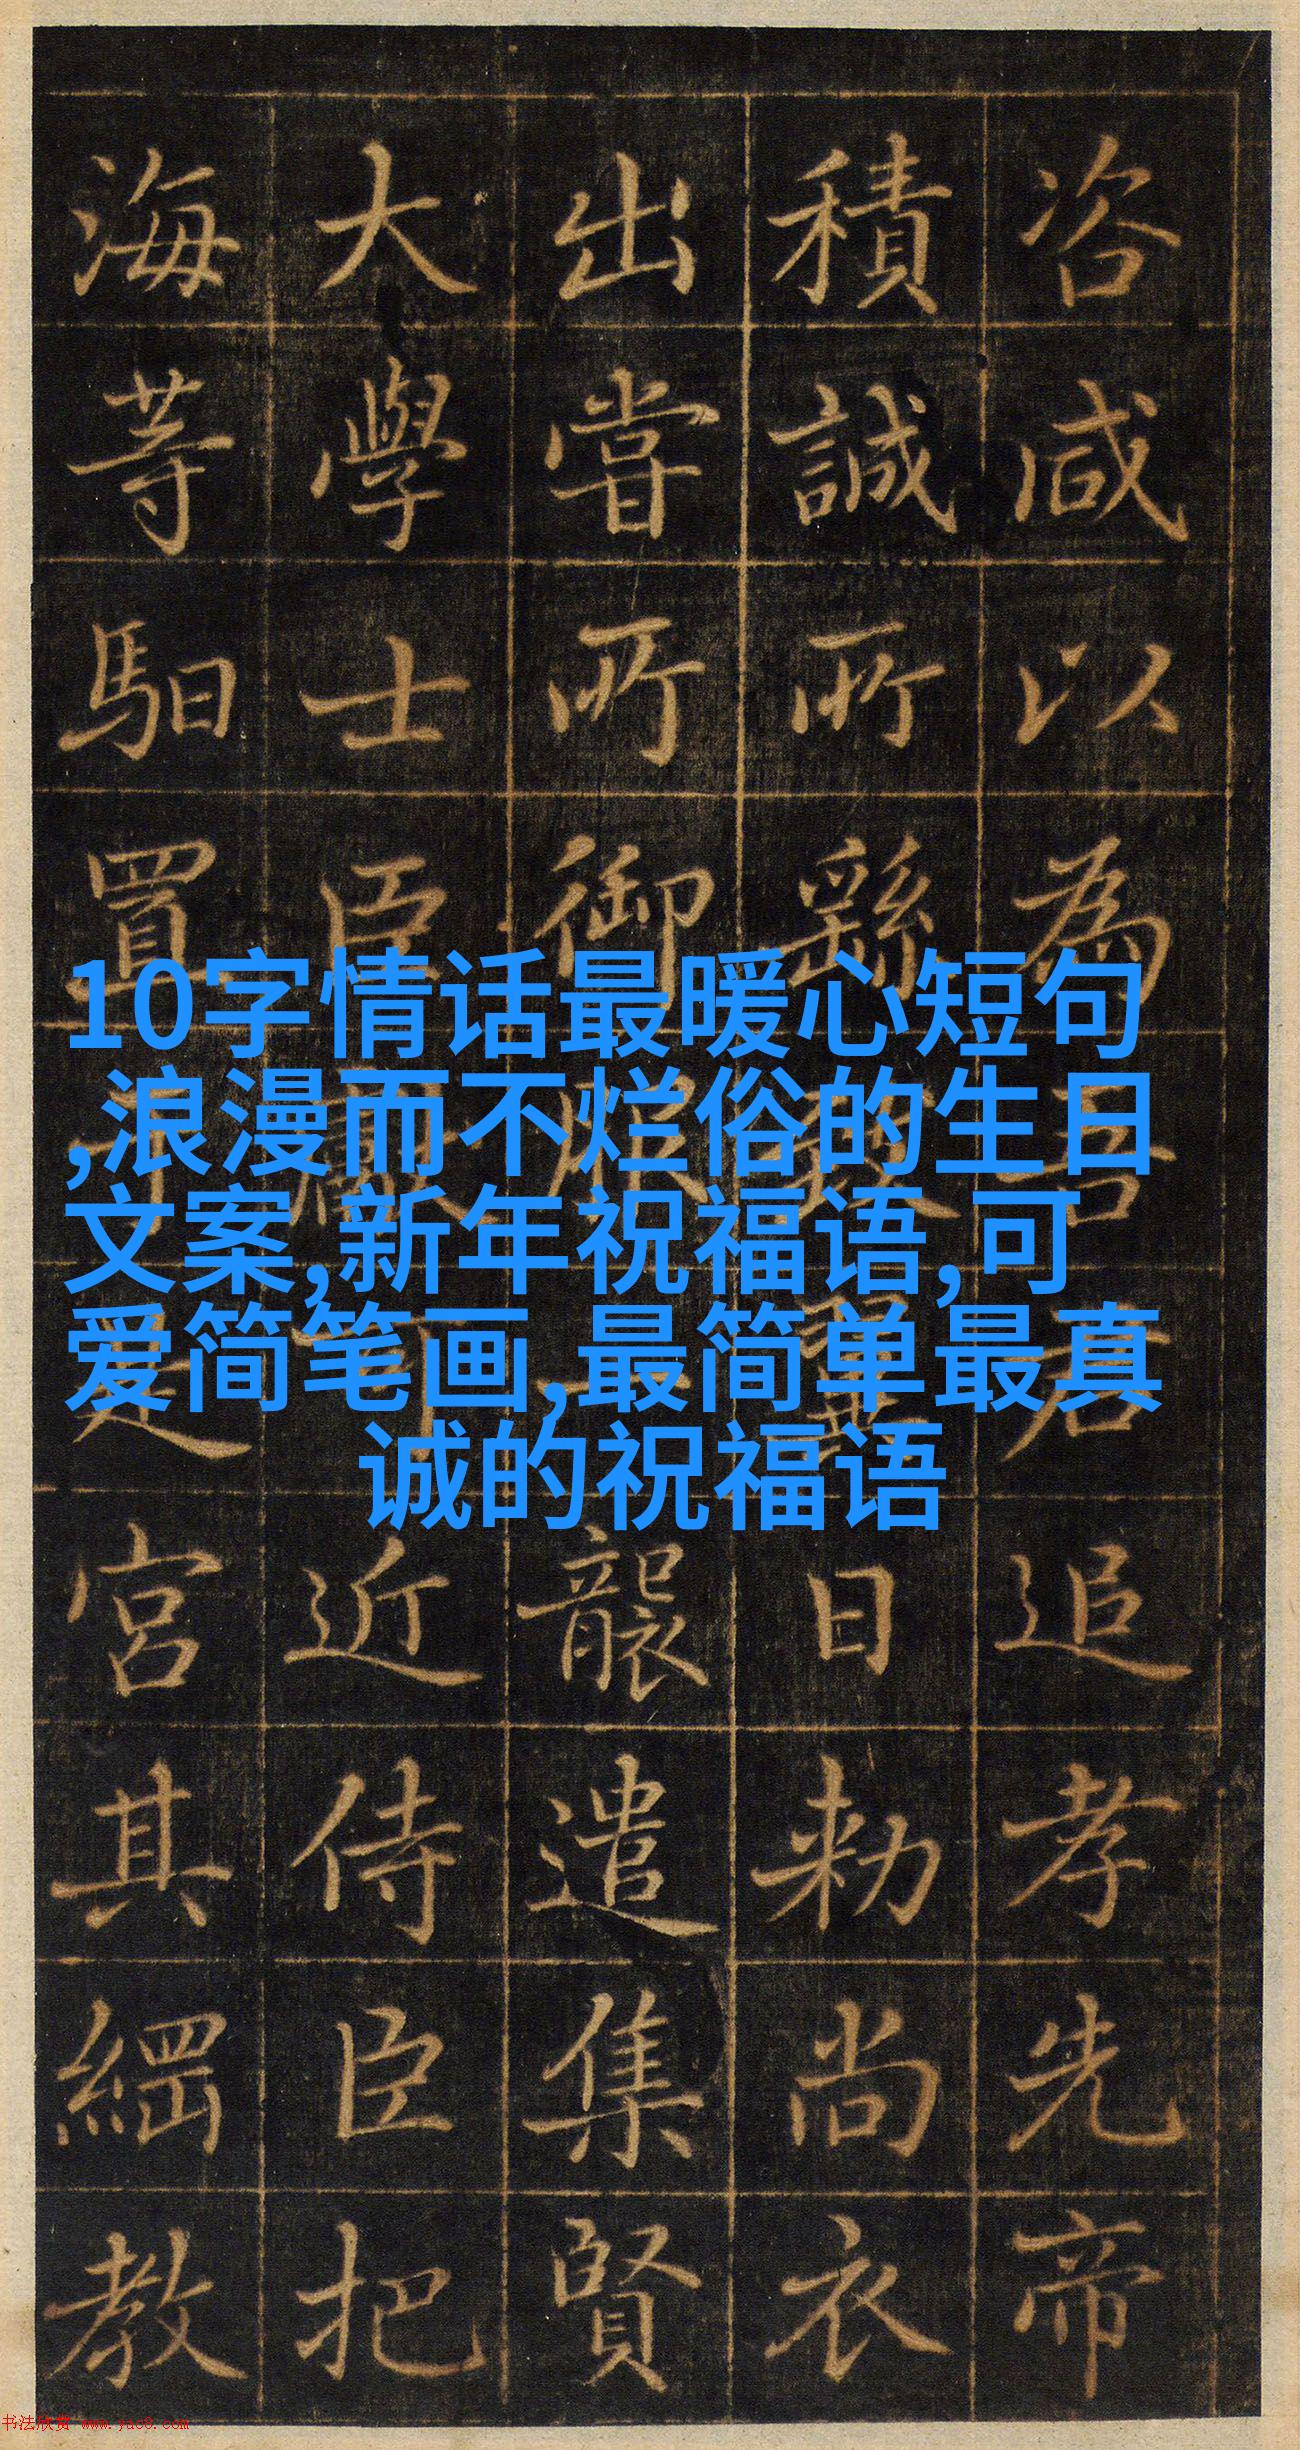 咨咸以為吾君追孝先帝
積誠所繇致日勅尚衣
出嘗所御服一襲遣集賢
大學士臣近侍臣把
海等馹置于是宮其綱教
10字情话最暖心短句
,浪漫而不烂俗的生日
文案,新年祝福语,可
爱简笔画,最简单最真
诚的祝福语
书法欣赏 www.yac8.com